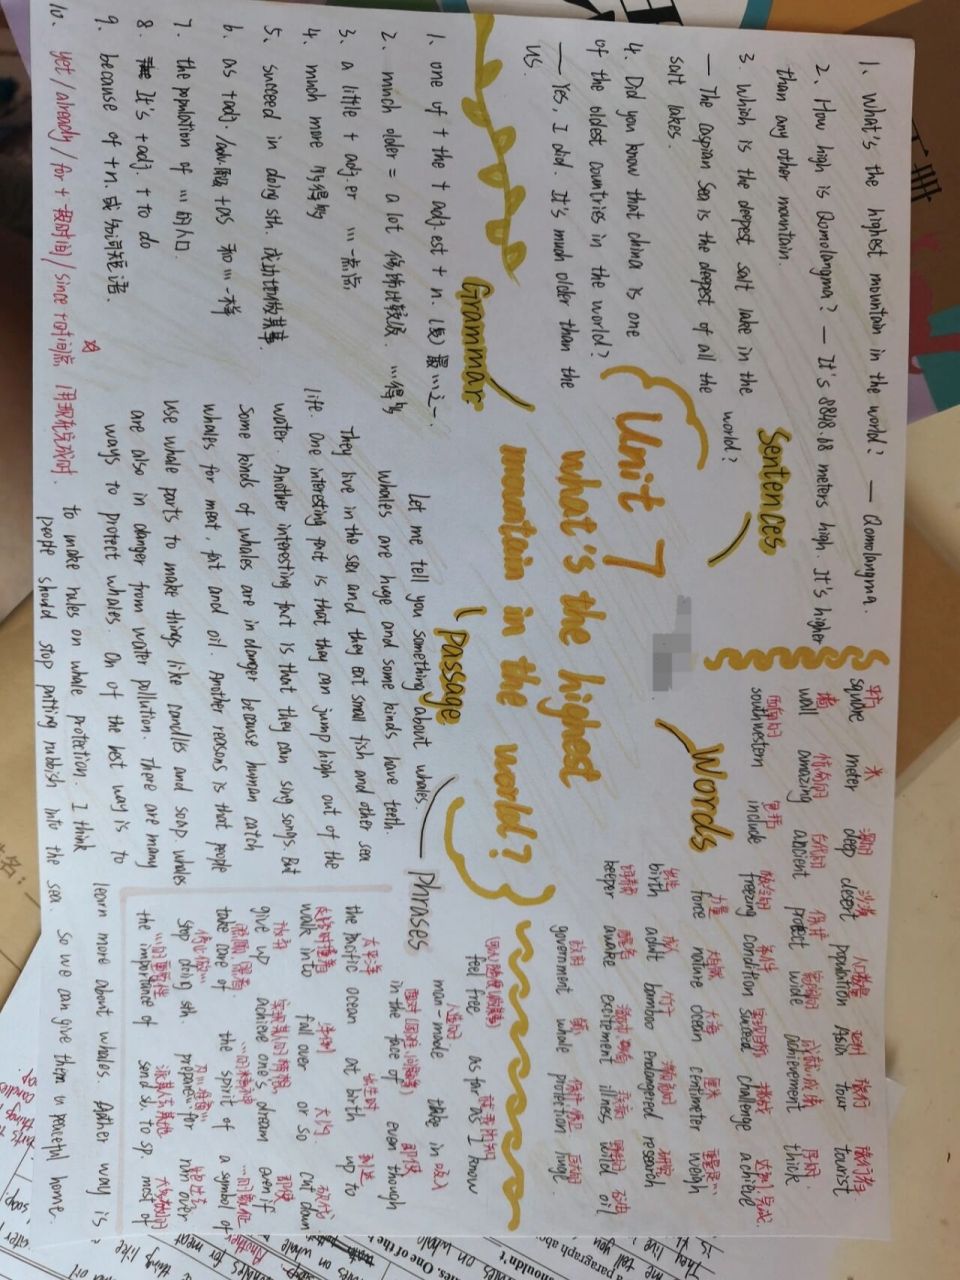 Unit 7
What's the highest
mountain in the world?
Sentences
1. What's the highest mountain in the world? — Qomolangma.
2. How high is Qomolangma? — It's 8848.68 meters high. It's higher
than any other mountain.
3. Which is the deepest salt lake in the
world?
— The Caspian Sea is the deepest of all the
salt lakes.
4. Did you know that china is one
of the oldest countries in the world?
— Yes, I did. It's much older than the
US.
Words
平方 米 深的 沙漠 人口数量 亚洲 旅行 旅行者
square meter deep desert population Asia tour tourist
墙 惊奇的 古代的 保护 宽阔的 成就成绩 厚的
wall amazing ancient protect wide achievement thick
西南的 包括 极冷的 条件 实现目标 挑战 达到,完成
southwestern include freezing condition succeed challenge achieve
力量 大自然 大海 厘米 重量是…
force nature ocean centimeter weigh
出生 成 竹子 濒危的 研究
birth adult bamboo endangered research
饲养员 醒着 激动兴奋 疾病 野的 油
keeper awake excitement illness wild oil
政府 保护 巨大的
government whale protection huge
Grammar
1. one of + the + adj.est + n.(复) 最…之一
2. much older = a lot 修饰比较级 …得多
3. a little + adj.er …一点点
4. much more …得多
5. succeed in doing sth. 成功地做某事
6. as + adj./adv.原级 + as 和…一样
7. the population of …的人口
8. It's + adj. + to do
9. because of + n. 或名词短语.
10. yet / already / for + 一段时间 / since + 时间点 用现在完成时
Passage
Let me tell you something about whales.
whales are huge and some kinds have teeth.
They live in the sea and they eat small fish and other sea
life. One interesting fact is that they can jump high out of the
water. Another interesting fact is that they can sing songs. But
Some kinds of whales are in danger because human catch
whales for meat, fat and oil. Another reasons is that people
use whale parts to make things like candles and soap. whales
are also in danger from water pollution. There are many
ways to protect whales. On of the best way is to
learn more about whales. Another way is
to make rules on whale protection. I think
people should stop putting rubbish into the sea. So we can give them a peaceful home.
Phrases
feel free as far as I know
人造的 吸入
man-made take in
面对(困难) 即使
in the face of even though
太平洋 出生时 到达
the pacific ocean at birth up to
走路时撞着 摔倒 大约 砍伐
walk into fall over or so cut down
放弃 实现某人的梦想 即使
give up achieve one's dream even if
照顾 …的精神 …的象征
take care of the spirit of a symbol of
停止做… 为…准备
stop doing sth. prepare for run over
…的重要性 派某人去某地 大多数的
the importance of send sb. to sp. most of